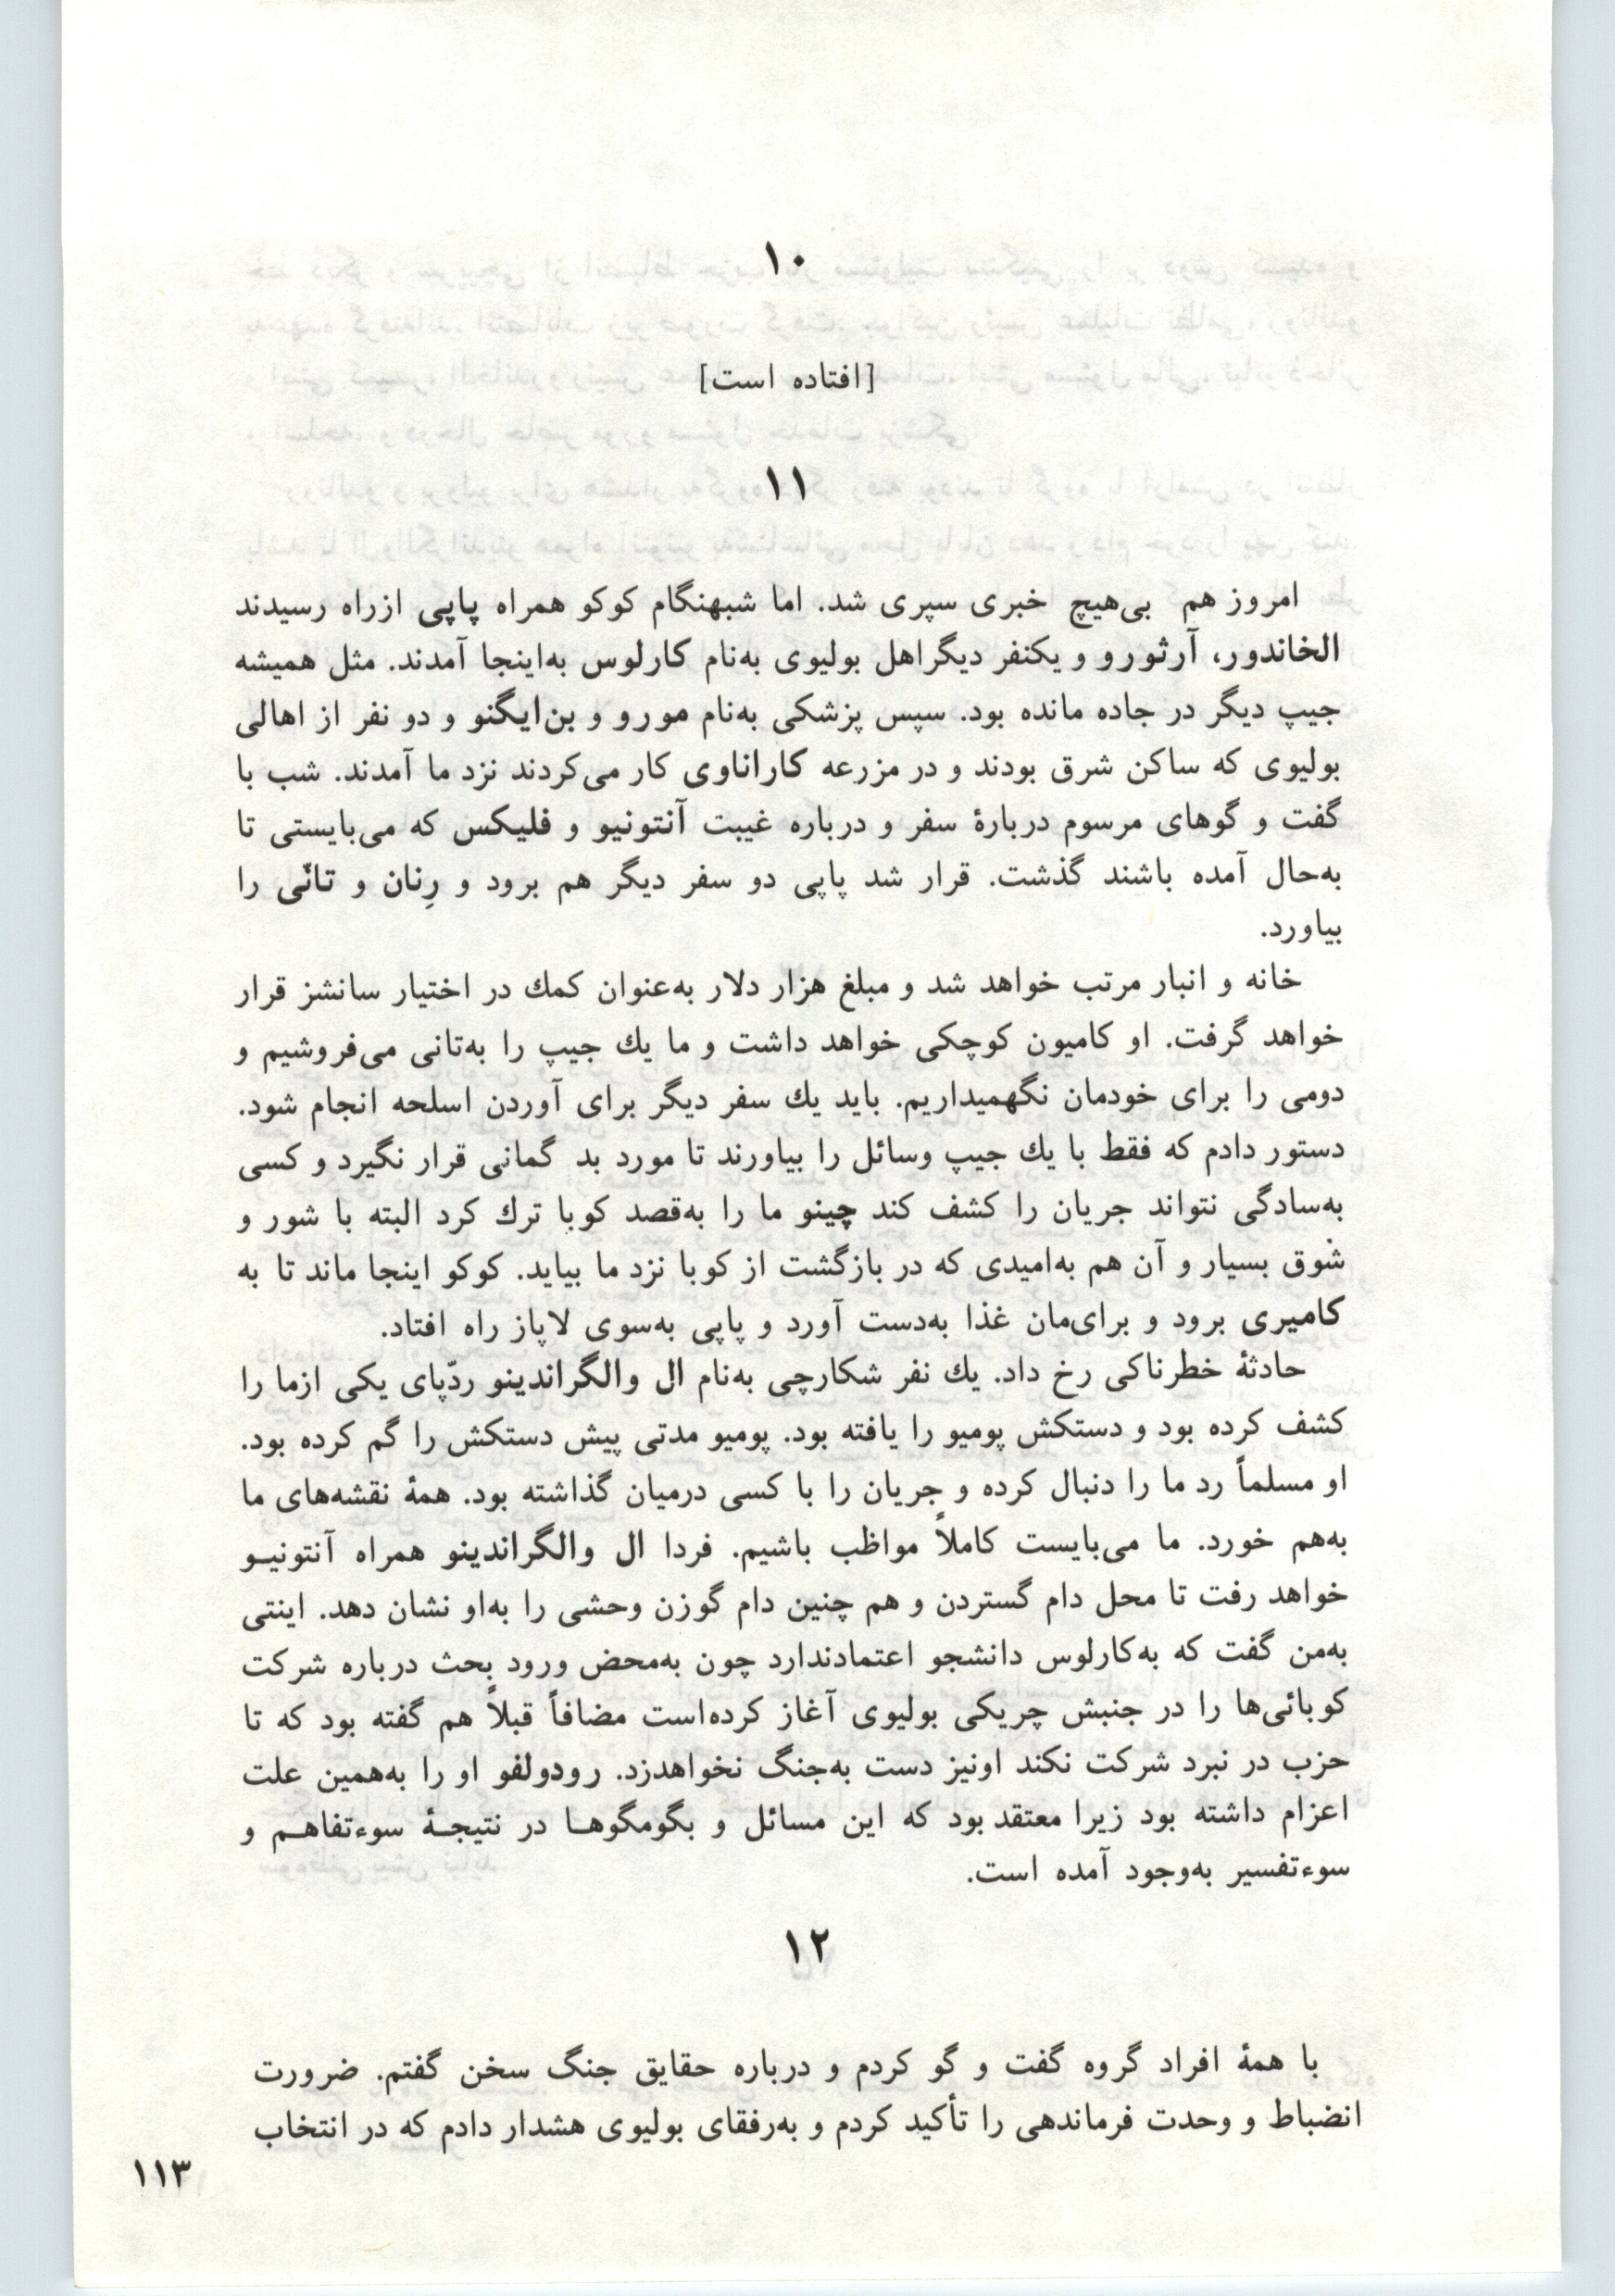 ۱۰
[افتاده است]
۱۱
امروز هم بی‌هیچ خبری سپری شد. اما شبهنگام کوکو همراه پاپی ازراه رسیدند
الخاندور، آرثورو و یکنفر دیگراهل بولیوی به‌نام کارلوس به‌اینجا آمدند. مثل همیشه
جیپ دیگر در جاده مانده بود. سپس پزشکی به‌نام مورو و بن‌ایگنو و دو نفر از اهالی
بولیوی که ساکن شرق بودند و در مزرعه کاراناوی کار می‌کردند نزد ما آمدند. شب با
گفت و گوهای مرسوم دربارهٔ سفر و درباره غیبت آنتونیو و فلیکس که می‌بایستی تا
به‌حال آمده باشند گذشت. قرار شد پاپی دو سفر دیگر هم برود و رِنان و تانّی را
بیاورد.
خانه و انبار مرتب خواهد شد و مبلغ هزار دلار به‌عنوان کمك در اختیار سانشز قرار
خواهد گرفت. او کامیون کوچکی خواهد داشت و ما یك جیپ را به‌تانی می‌فروشیم و
دومی را برای خودمان نگهمیداریم. باید یك سفر دیگر برای آوردن اسلحه انجام شود.
دستور دادم که فقط با یك جیپ وسائل را بیاورند تا مورد بد گمانی قرار نگیرد و کسی
به‌سادگی نتواند جریان را کشف کند چینو ما را به‌قصد کوبا ترك کرد البته با شور و
شوق بسیار و آن هم به‌امیدی که در بازگشت از کوبا نزد ما بیاید. کوکو اینجا ماند تا به
کامیری برود و برای‌مان غذا به‌دست آورد و پاپی به‌سوی لاپاز راه افتاد.
حادثهٔ خطرناکی رخ داد. یك نفر شکارچی به‌نام ال والگراندینو ردّپای یکی ازما را
کشف کرده بود و دستکش پومیو را یافته بود. پومیو مدتی پیش دستکش را گم کرده بود.
او مسلماً رد ما را دنبال کرده و جریان را با کسی درمیان گذاشته بود. همهٔ نقشه‌های ما
به‌هم خورد. ما می‌بایست کاملاً مواظب باشیم. فردا ال والگراندینو همراه آنتونیـو
خواهد رفت تا محل دام گستردن و هم چنین دام گوزن وحشی را به‌او نشان دهد. اینتی
به‌من گفت که به‌کارلوس دانشجو اعتمادندارد چون به‌محض ورود بحث درباره شرکت
کوبائی‌ها را در جنبش چریکی بولیوی آغاز کرده‌است مضافاً قبلاً هم گفته بود که تا
حزب در نبرد شرکت نکند اونیز دست به‌جنگ نخواهدزد. رودولفو او را به‌همین علت
اعزام داشته بود زیرا معتقد بود که این مسائل و بگومگوهـا در نتیجـهٔ سوءتفاهـم و
سوءتفسیر به‌وجود آمده است.
۱۲
با همهٔ افراد گروه گفت و گو کردم و درباره حقایق جنگ سخن گفتم. ضرورت
انضباط و وحدت فرماندهی را تأکید کردم و به‌رفقای بولیوی هشدار دادم که در انتخاب
۱۱۳